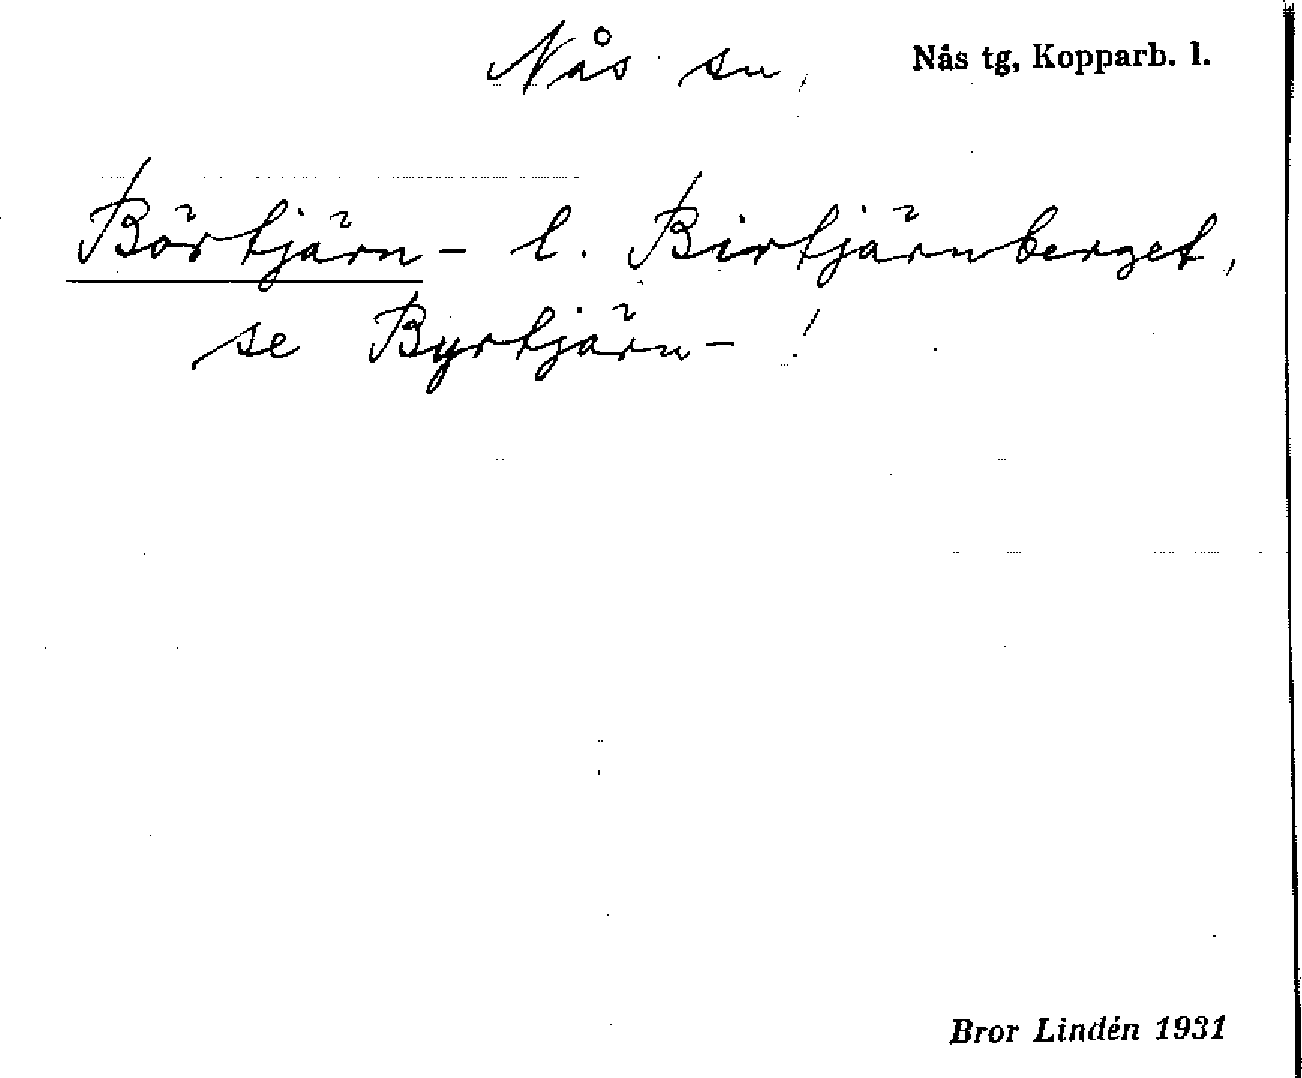 Nås sn, Nås tg, Kopparb. l.
Börtjärn- l. Birtjärnberget,
se Byrtjärn- !
Bror Lindén 1931